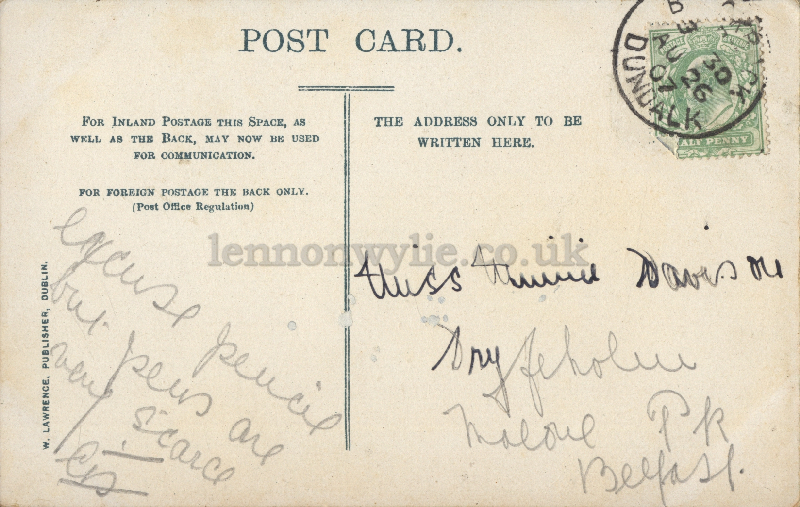 POST CARD.
FOR INLAND POSTAGE THIS SPACE, AS
WELL AS THE BACK, MAY NOW BE USED
FOR COMMUNICATION.
FOR FOREIGN POSTAGE THE BACK ONLY.
(Post Office Regulation)
THE ADDRESS ONLY TO BE
WRITTEN HERE.
DUNDALK
AU 26
07
ALF PENNY
lennonwylie.co.uk
W. LAWRENCE, PUBLISHER, DUBLIN.
excuse pencil
but pens are
very scarce
Miss Minnie Davison
Dryfeholm
Malone Pk
Belfast.